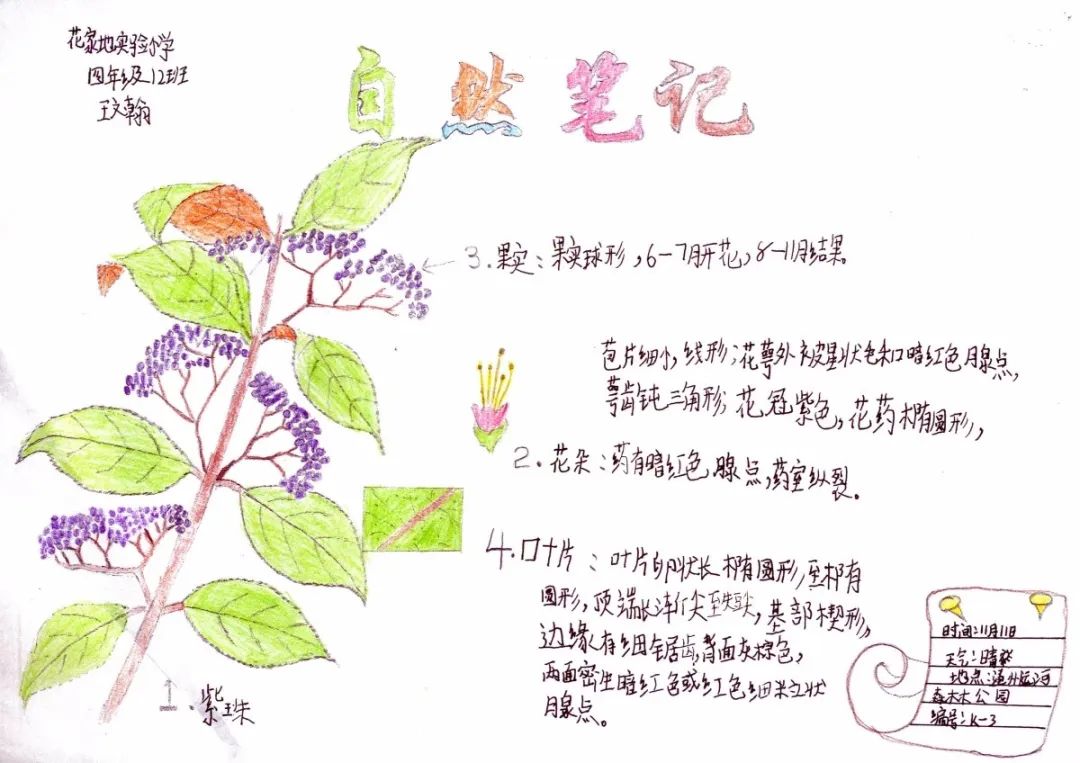 花家地实验小学
四年级12班
王文翰
自然笔记
3.果实：果实球形，6-7月开花，8-11月结果。
苞片细小，线形；花萼外被星状毛和暗红色腺点，
萼齿钝三角形；花冠紫色，花药椭圆形，
2.花朵：药有暗红色腺点，药室纵裂。
4.叶片：叶片卵状长椭圆形，至椭有
圆形，顶端长渐尖至短尖，基部楔形，
边缘有细锯齿，背面灰棕色，
两面密生暗红色或红色细米立状
腺点。
1.紫珠
时间：11月11日
天气：晴
地点：温州
森林公园
编号：K-3